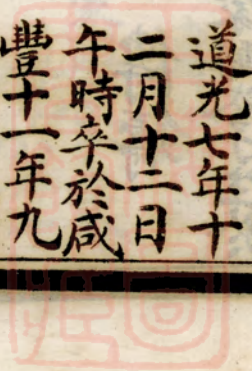 道光七年十
二月十二日
午時卒於咸
豐十一年九